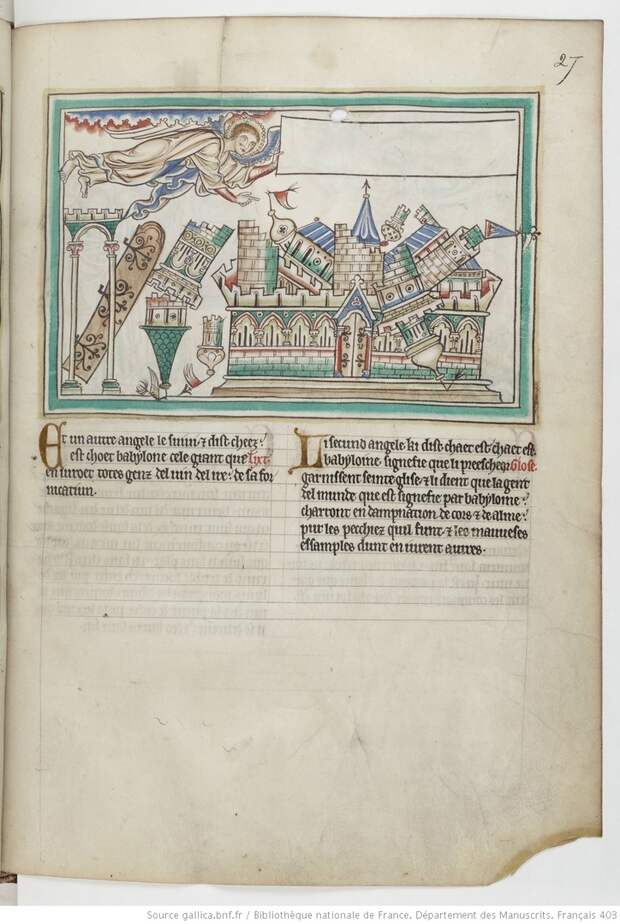 27
Et un autre angele le siuui ⁊ dist cheez
est choet babylone cele giant que Tixt
en iuroet totes genz del uin del ire de sa for
nicatiun.
Li secund angele ki dist chaet est chaet est
babyloine signefie que li preecheor Glose
garnissent seinte glise ⁊ li dient que la gent
del munde que est signefie par babyloine
charront en dampnatiun de cors ⁊ de alme
pur les pecchiez quil funt ⁊ les mauueses
essamples dunt en iurent autres.
Source gallica.bnf.fr / Bibliothèque nationale de France. Département des Manuscrits. Français 403